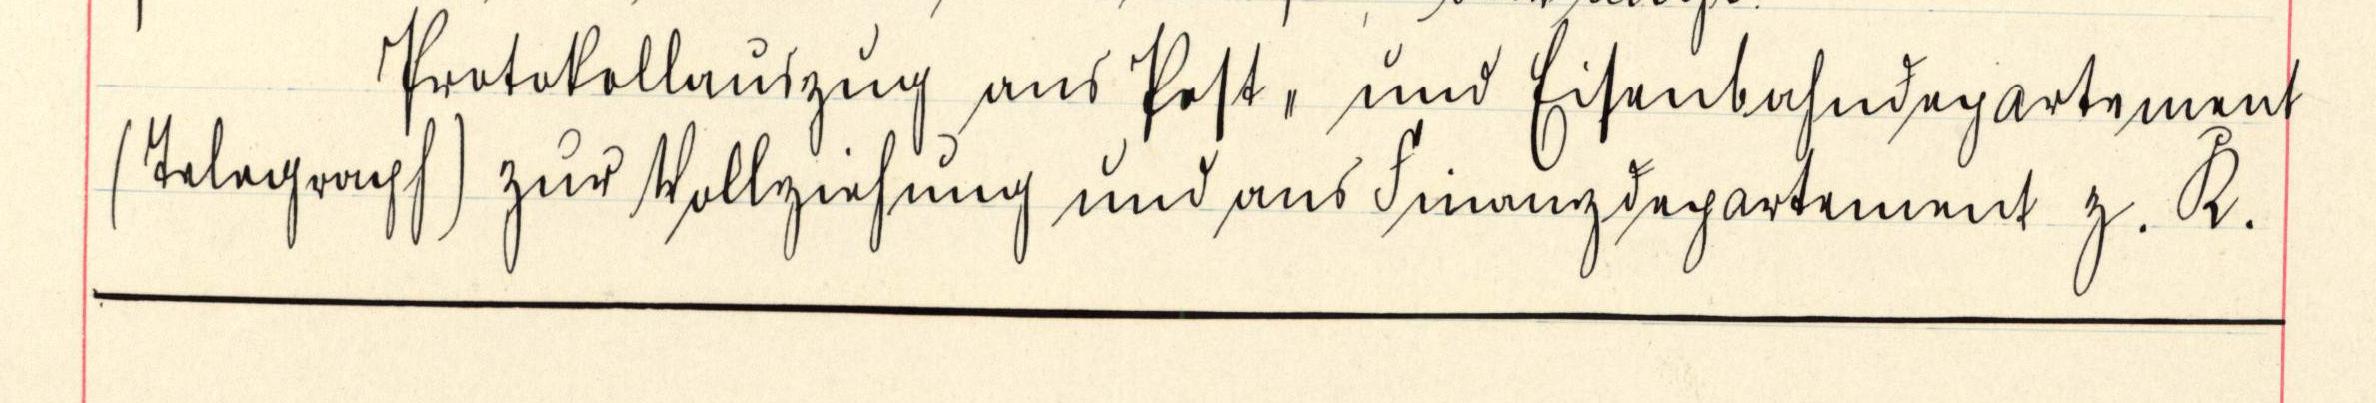 Protokollauszug ans Post- und Eisenbahndepartement
(Telegraph) zur Vollziehung und ans Finanzdepartement z. K.